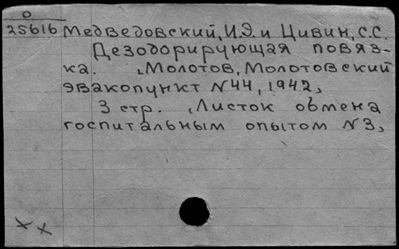 О
25616 Медведовский, И.Э. и Цивин, С.С.
Дезодорирующая повяз-
ка. , Молотов, Молотовский
эвакопункт N44, 1942,
3 стр. , Листок обмена
госпитальным опытом N3,
××